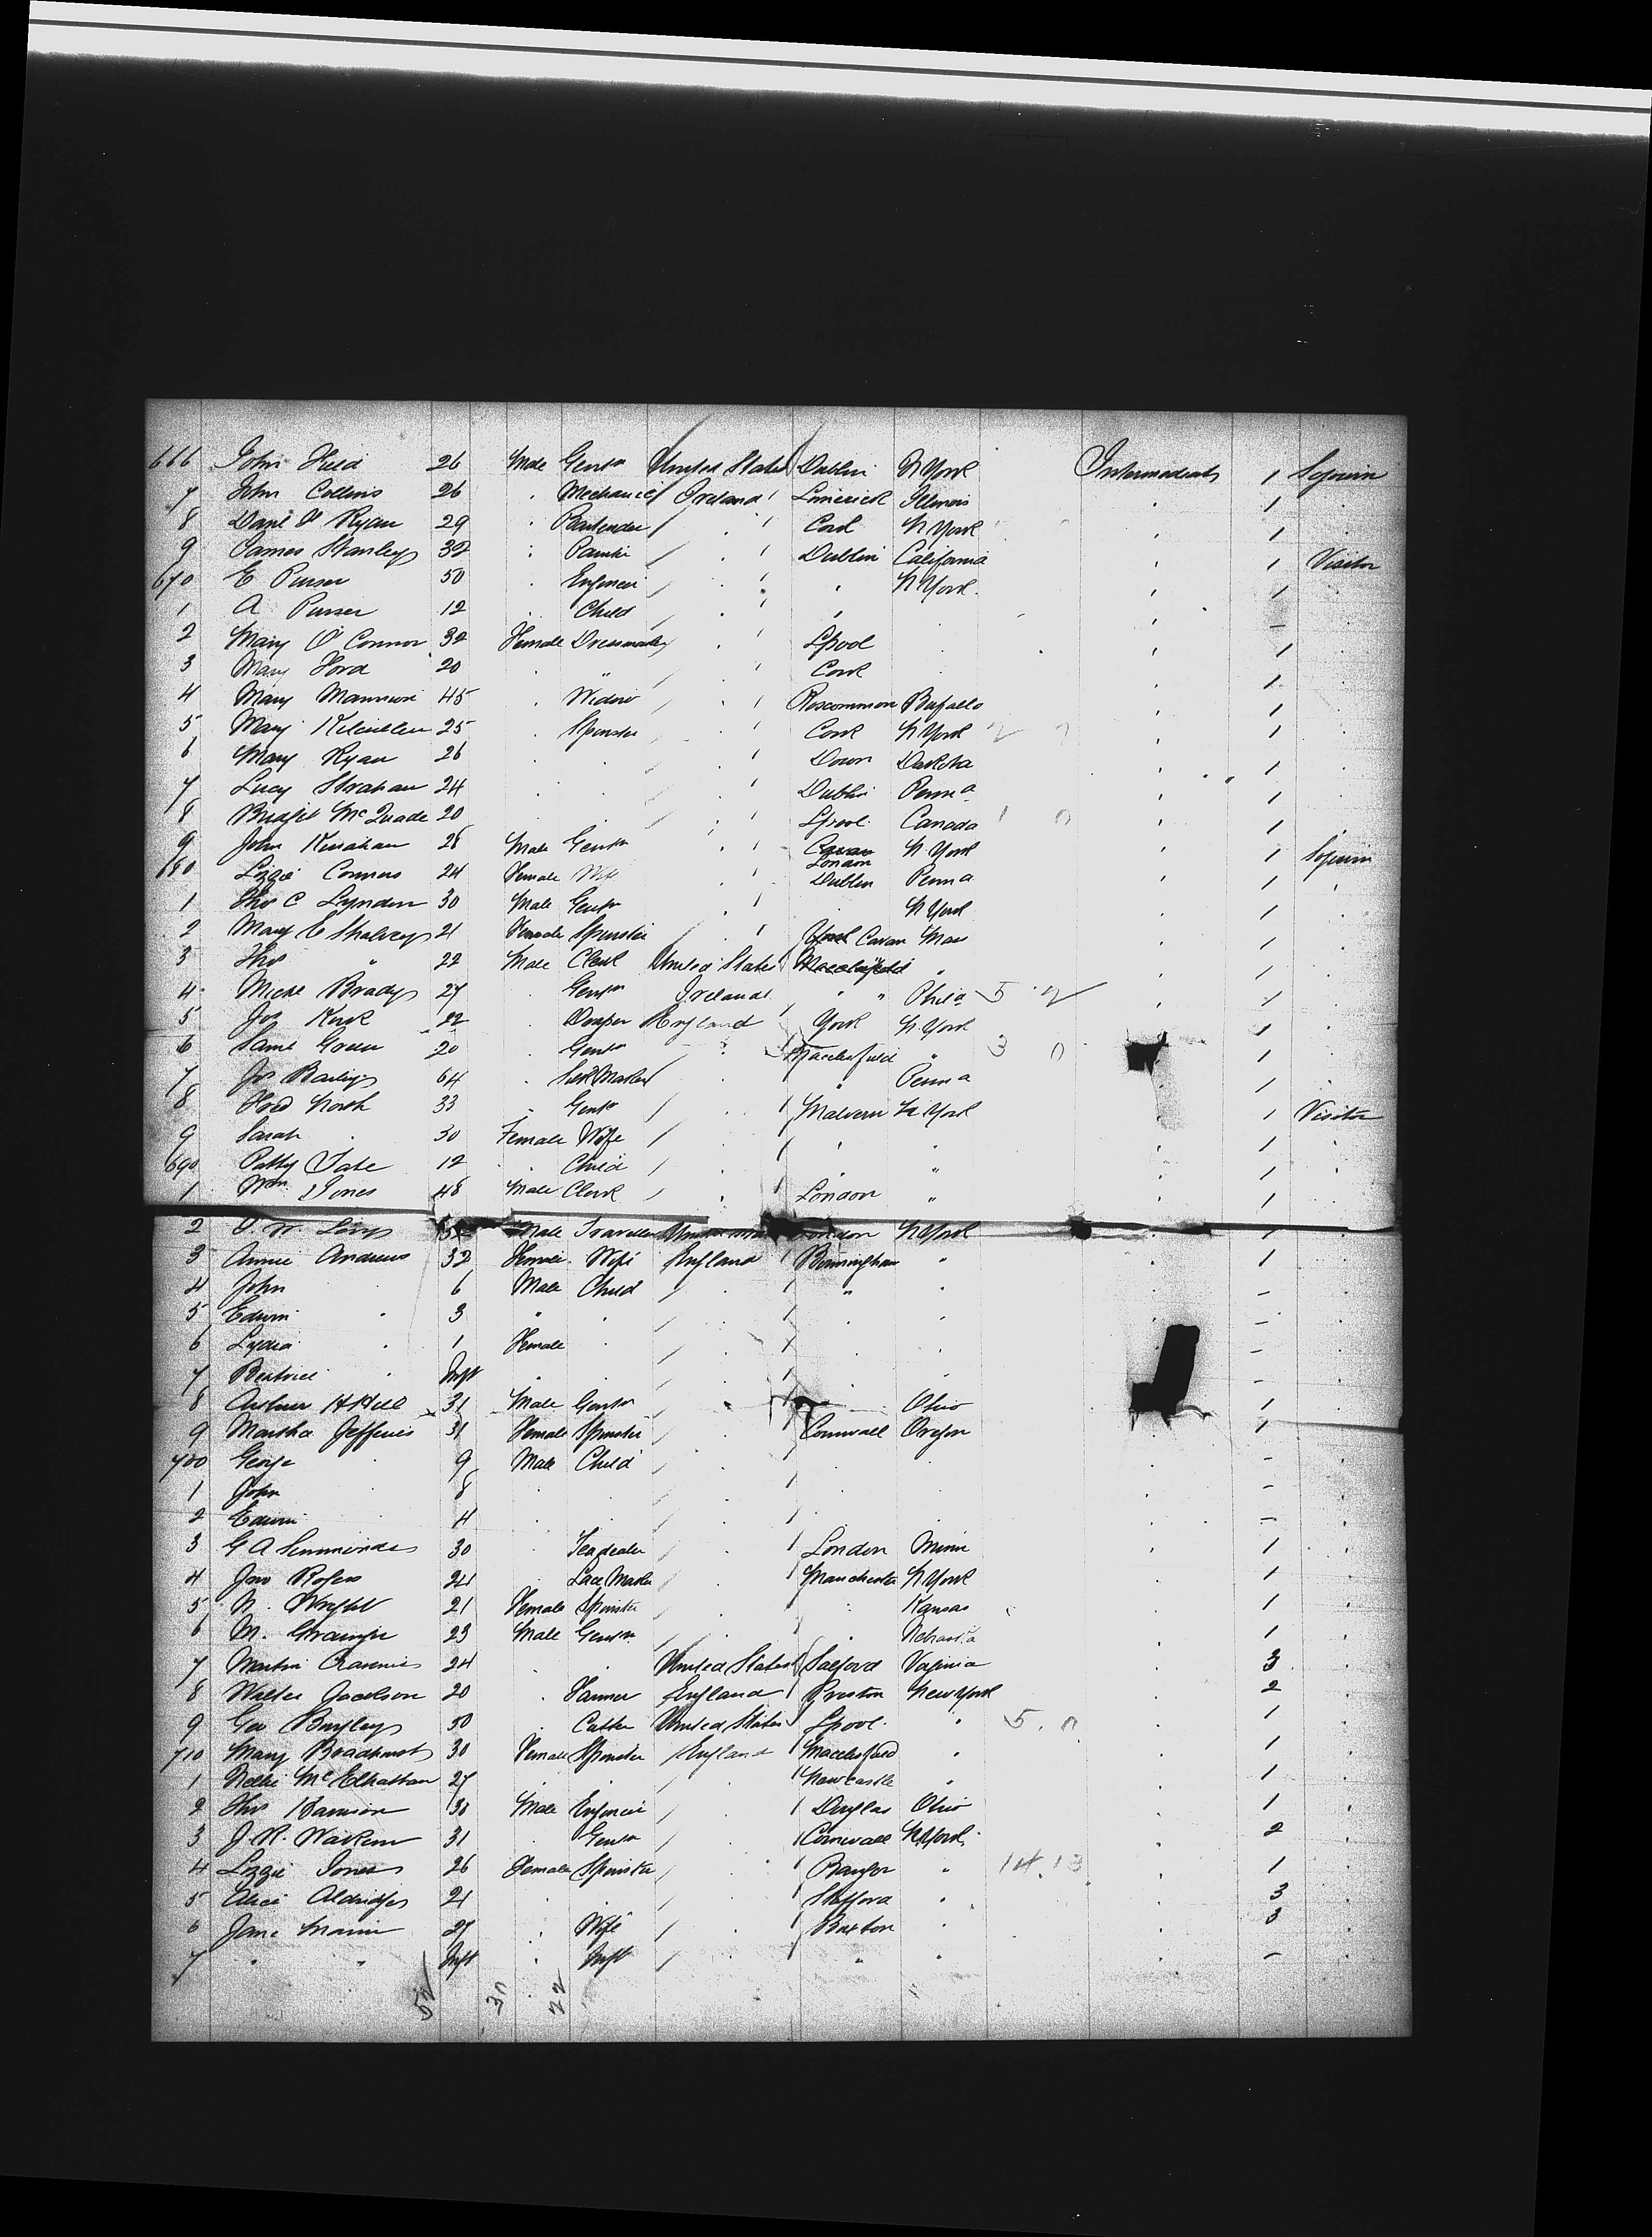 666 John 26 Male Gentn United States Dublin N York Intermediate 1 Sojourn
7 John Collins 26 " Mechanic Ireland Limerick Illinois " 1 "
8 Danl Ryan 29 " Bartender " Cork N York " 1 "
9 James Stanley 32 " " Dublin California " 1 Visitor
670 E Purser 50 " Engineer " " N York " 1 "
1 A Purser 12 " Child " " " –
2 Mary O'Connor 32 Female Dressmaker " Lpool " " 1 "
3 Mary Ford 20 " " " Cork " " 1 "
4 Mary 45 " Widow " Roscommon Buffalo " 1 "
5 Mary 25 " Spinster " Cork N York " 1 "
6 Mary Ryan 26 " " " Down Dakota " 1 "
7 Lucy Strahan 24 " " " Dublin Penna " 1 "
8 Bridget McQuade 20 " " " Lpool Canada " 1 "
9 John Kinahan 28 Male Gentn " Cavan N York " 1 Sojourn
London
680 Lizzie Connors 24 Female Wife " Dublin Penna " 1 "
1 Thos C Lyndon 30 Male Gentn " " N York " 1 "
2 Mary E 21 Female Spinster " York Cavan Mass " 1 "
3 Thos " 22 Male Clerk United States Macclesfield " " 1 "
4 Michl Brady 27 " Gentn Ireland " " Phila 5 " 1 "
5 Jos Kirk 22 " Draper England York N York " 1 "
6 Saml Green 20 " Gentn " Macclesfield " 3 1 "
7 Js 64 " Silk Maker " " Penna 1 "
8 Fred North 33 " Gentn " Malvern N York " 1 Visitor
9 Sarah " 30 Female Wife " " " " 1 "
690 Patty Tate 12 " Child " " " " 1 "
1 Wm Jones 48 Male Clerk " London " " 1 "
2 Male Traveller London N York " 1 "
3 Annie Andrews 32 Female Wife England Birmingham " " 1 "
4 John 6 Male Child " " " –
5 Edwin " 3 " " " " " –
6 Lydia " 1 Female " " " " –
7 Beatrice " Inft " " " " " –
8 Arthur H Hill 31 Male Gentn " Ohio 1 "
9 Martha Jefferies 31 Female Spinster " Cornwall Oregon 1 "
700 George " 9 Male Child " " " –
1 John " 8 " " " " " –
2 Edwin 4 " " " " " –
3 G A Simmonds 30 " Tea dealer " London Minn " 1 "
4 Jno Rogers 24 " Lace Maker " Manchester N York " 1 "
5 N. Wright 21 Female Spinster " " Kansas " 1 "
6 M. Grainger 23 Male Gentn " " Nebraska " 1 "
7 Martin 24 " " United States Salford Virginia " 3 "
8 Walter Jackson 20 " Farmer England Preston New York " 2 "
9 Geo Bayley 50 " Cutter United States Lpool " 5 " 1 "
710 Mary Broadhurst 30 Female Spinster England Macclesfield " " 1 "
1 Nellie McElhattan 27 " " " Newcastle " " 1 "
2 Thos 30 Male Engineer " Douglas Ohio " 1 "
3 J. R. 31 " Gentn " Cornwall N York " 2 "
4 Lizzie Jones 26 Female Spinster " Bangor " 14 13 " 1 "
5 Alice Aldridge 21 " " " Stafford " " 3 "
6 Jane 27 " Wife " Buxton " " 3 "
7 " " Inft " Inft " " " " – "
22